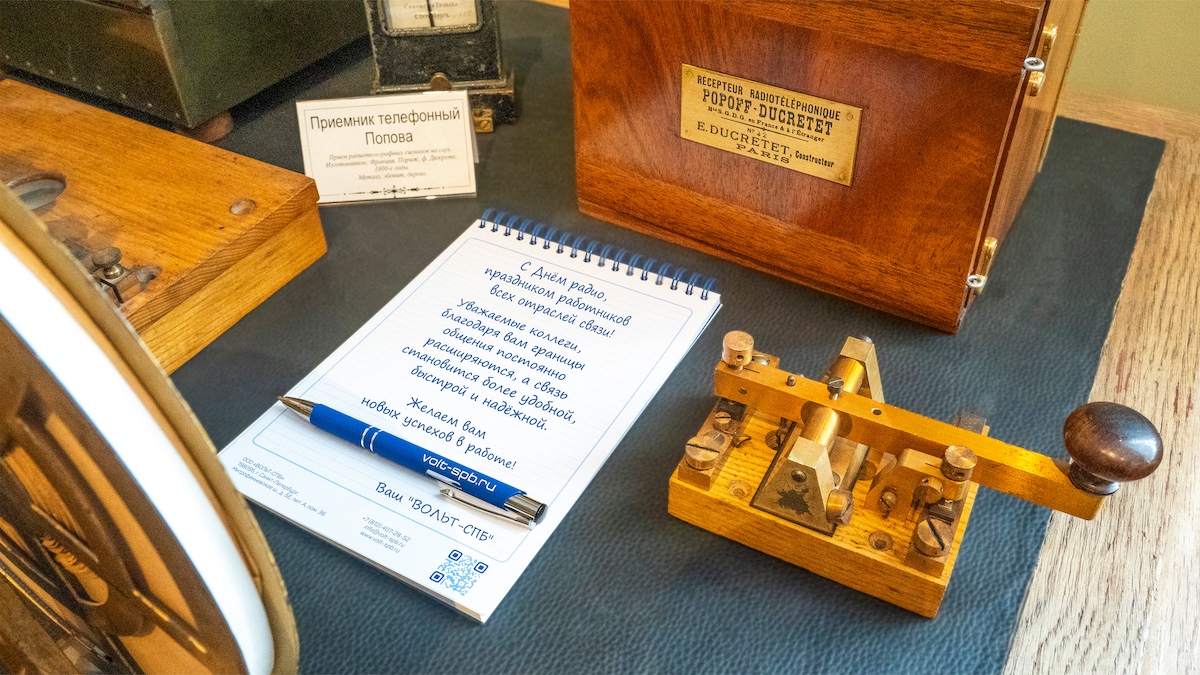 Приемник телефонный
Попова
Прием радиотелеграфных сигналов на слух.
Изготовитель: Франция, Париж, ф. Дюкрете,
1900-е годы.
Металл, эбонит, дерево.
RÉCEPTEUR RADIOTÉLÉPHONIQUE
POPOFF-DUCRETET
Bté S.G.D.G. en France & à l'Étranger
No 42
E. DUCRETET, Constructeur
PARIS
С Днём радио,
праздником работников
всех отраслей связи!
Уважаемые коллеги,
благодаря вам границы
общения постоянно
расширяются, а связь
становится более удобной,
быстрой и надёжной.
Желаем вам
новых успехов в работе!
volt-spb.ru
Ваш "ВОЛЬТ-СПБ"
ООО «ВОЛЬТ-СПБ»
198095, г. Санкт-Петербург,
Митрофаньевское ш., д. 5Е, лит. А, пом. 36
+7 (812) 407-28-52
info@volt-spb.ru
www.volt-spb.ru